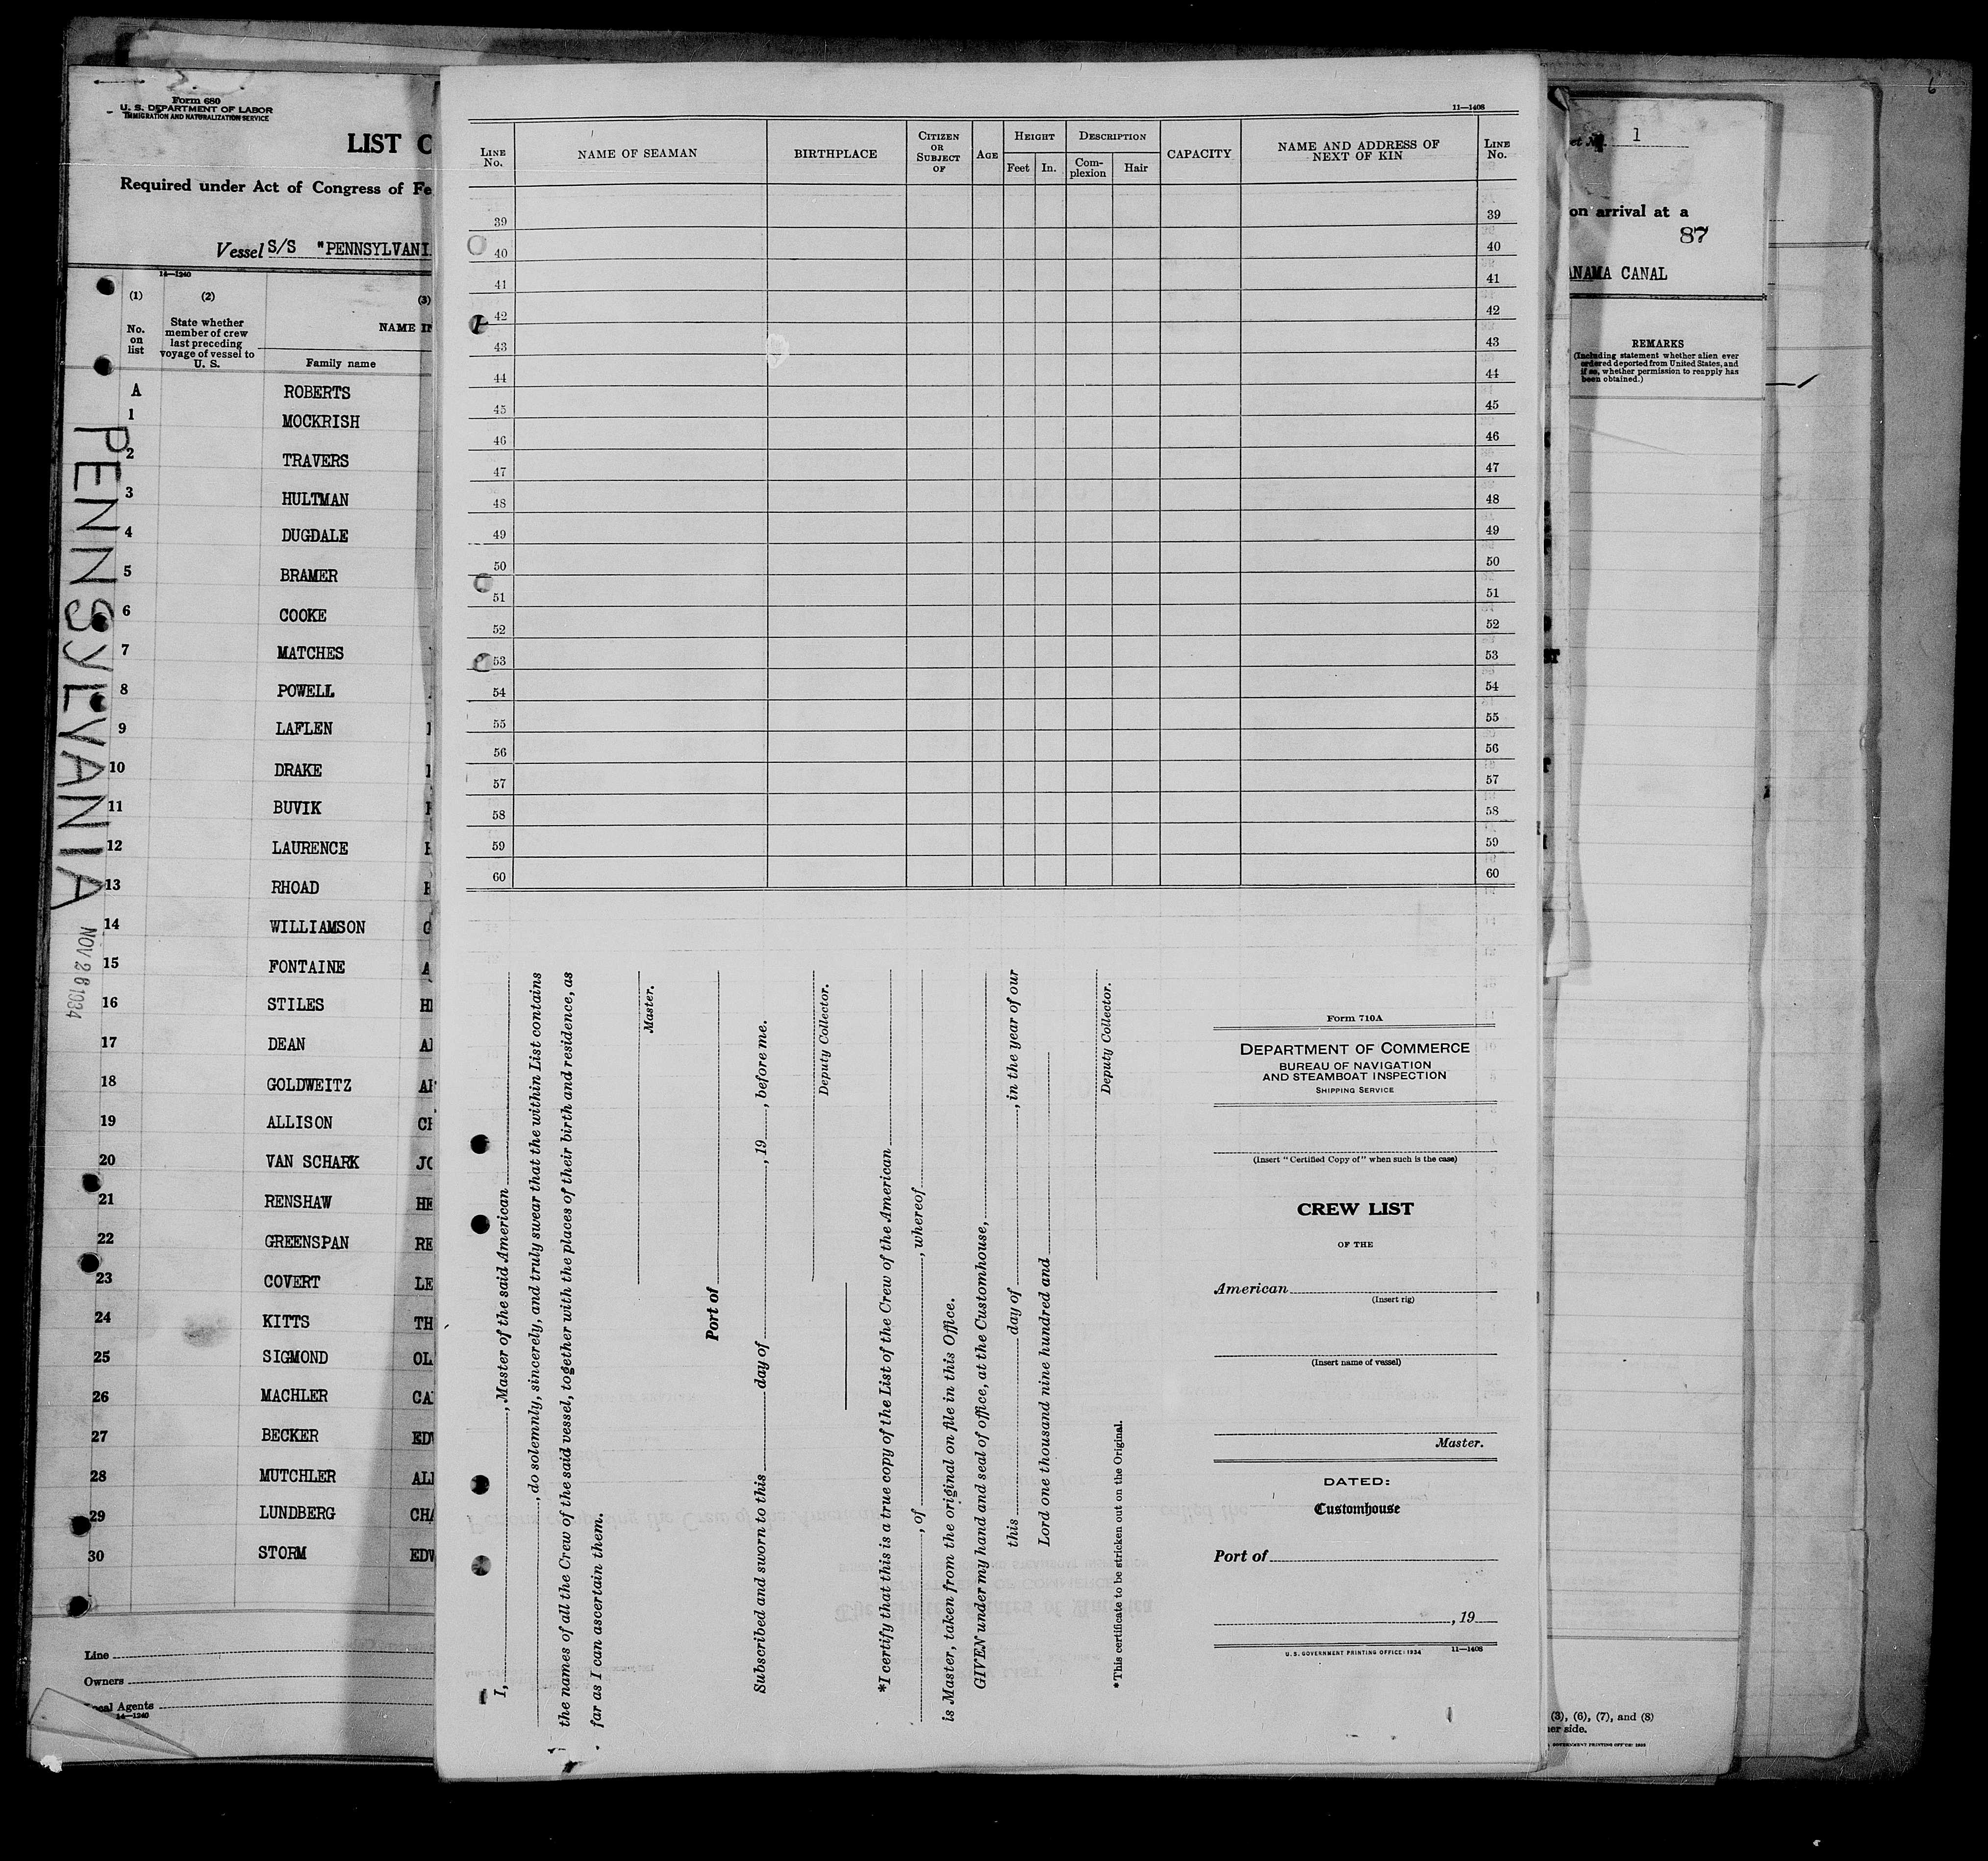 Form 680
U. S. DEPARTMENT OF LABOR
IMMIGRATION AND NATURALIZATION SERVICE
LIST
Required under Act of Congress of
Vessel S/S "PENNSYLVANI
14—1240
(1) (2) (3)
No. on list
State whether member of crew last preceding voyage of vessel to U. S.
NAME
Family name
A ROBERTS
1 MOCKRISH
2 TRAVERS
3 HULTMAN
4 DUGDALE
5 BRAMER
6 COOKE
7 MATCHES
8 POWELL
9 LAFLEN
10 DRAKE
11 BUVIK
12 LAURENCE
13 RHOAD
14 WILLIAMSON
15 FONTAINE
16 STILES
17 DEAN
18 GOLDWEITZ
19 ALLISON
20 VAN SCHARK
21 RENSHAW HE
22 GREENSPAN RE
23 COVERT LE
24 KITTS TH
25 SIGMOND OL
26 MACHLER CA
27 BECKER
28 MUTCHLER
29 LUNDBERG
30 STORM
Line
Owners
Agents
14—1240
PENNSYLVANIA
NOV 26 1934
11—1408
LINE No.
NAME OF SEAMAN
BIRTHPLACE
CITIZEN OR SUBJECT OF
AGE
HEIGHT
Feet In.
DESCRIPTION
Complexion Hair
CAPACITY
NAME AND ADDRESS OF NEXT OF KIN
LINE No.
39 39
40 40
41 41
42 42
43 43
44 44
45 45
46 46
47 47
48 48
49 49
50 50
51 51
52 52
53 53
54 54
55 55
56 56
57 57
58 58
59 59
60 60
I, , Master of the said American
, do solemnly, sincerely, and truly swear that the within List contains
the names of all the Crew of the said vessel, together with the places of their birth and residence, as
far as I can ascertain them.
Master.
Port of
Subscribed and sworn to this day of , 19 , before me.
Deputy Collector.
*I certify that this is a true copy of the List of the Crew of the American
, of , whereof
is Master, taken from the original on file in this Office.
GIVEN under my hand and seal of office, at the Customhouse,
this day of , in the year of our
Lord one thousand nine hundred and
Deputy Collector.
*This certificate to be stricken out on the Original.
Form 710A
DEPARTMENT OF COMMERCE
BUREAU OF NAVIGATION
AND STEAMBOAT INSPECTION
SHIPPING SERVICE
(Insert "Certified Copy of" when such is the case)
CREW LIST
OF THE
American
(Insert rig)
(Insert name of vessel)
Master.
DATED:
Customhouse
Port of
, 19
U. S. GOVERNMENT PRINTING OFFICE: 1934 11—1408
1
on arrival at a
87
ANAMA CANAL
REMARKS
(Including statement whether alien ever
ordered deported from United States, and
if so, whether permission to reapply has
been obtained.)
(3), (6), (7), and (8)
side.
6